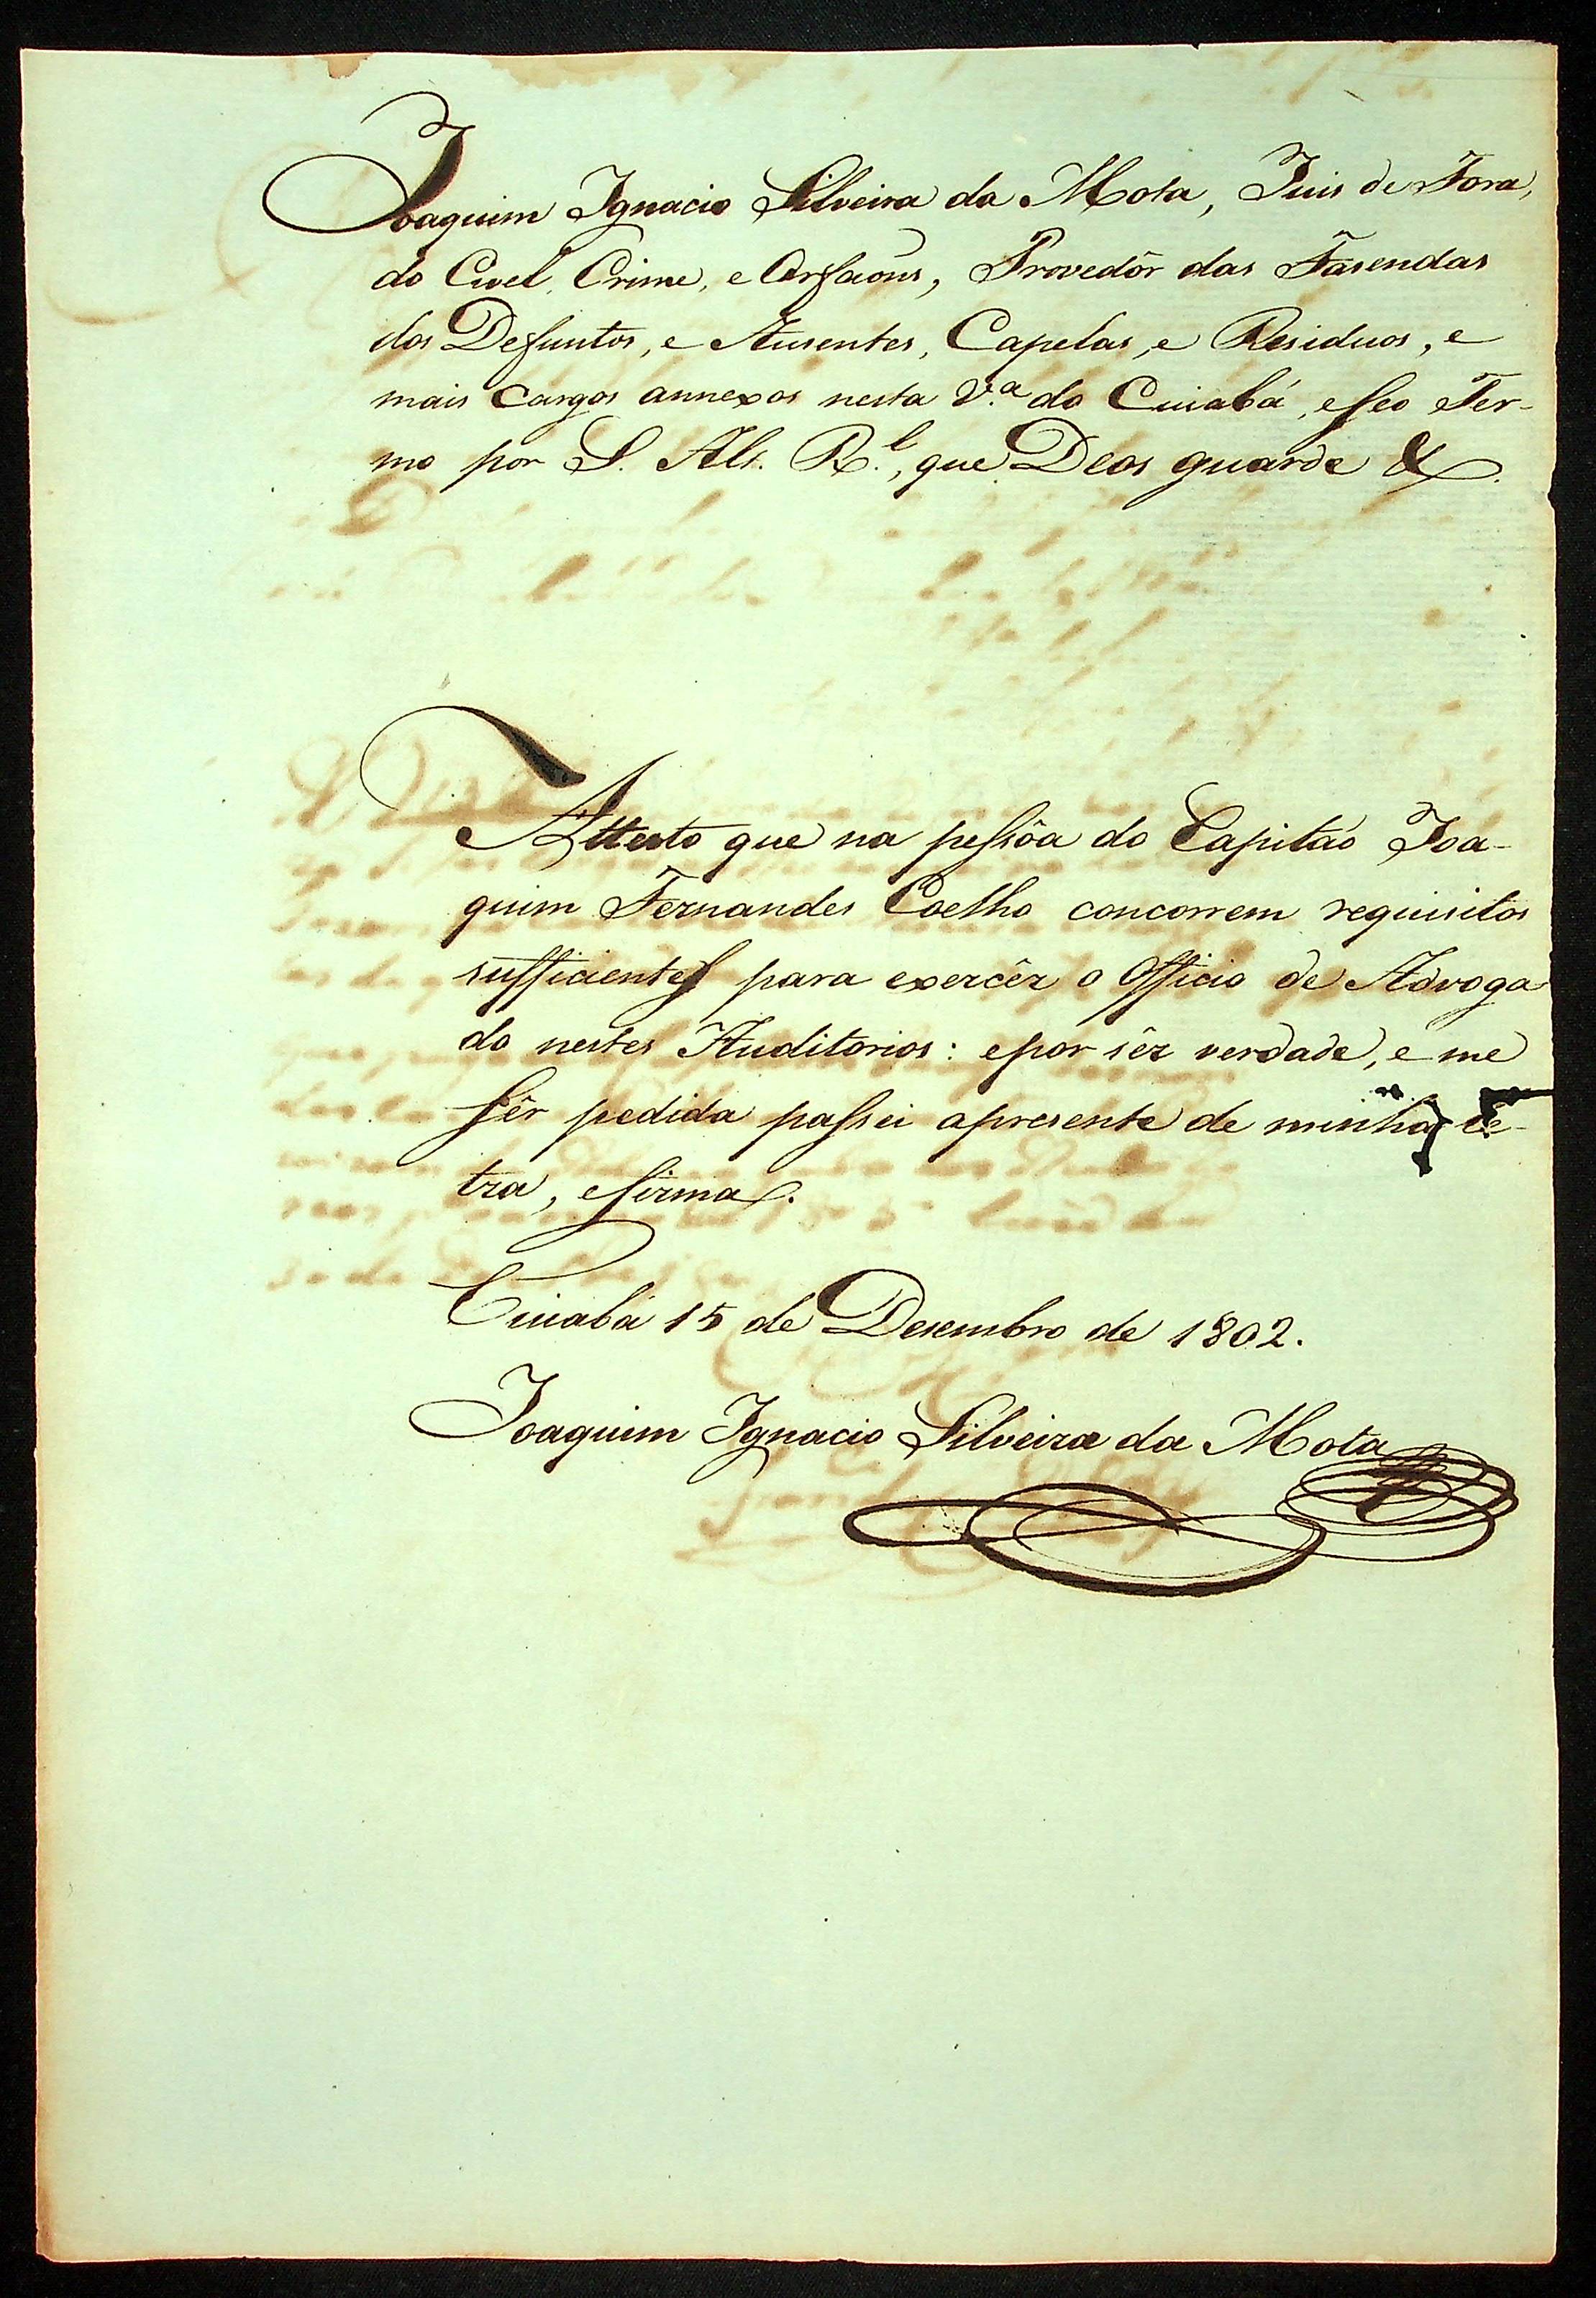 Joaquim Ignacio Silveira da Mota, Juis de Fora,
do Civel, Crime, e Orfaõns, Provedôr das Fasendas
dos Defuntos, e Ausentes, Capelas, e Residuos, e
mais cargos annexos nesta V.ª do Cuiabá, e seo Ter-
mo por S. Als. R.l, que Deos guarde &.
Attesto que na pessôa do Capitaõ Joa-
quim Fernandes Coelho concorrem requisitos
sufficientes para exercêr o Officio de Advoga-
do nestes Auditorios: e por sêr verdade, e me
sêr pedida passei a presente de minha le-
tra, e firma.
Cuiabá 15 de Desembro de 1802.
Joaquim Ignacio Silveira da Mota